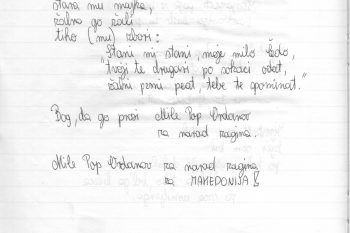 stara mu majka,
žalno go žali
tiho (mu) zbori:
"Stani mi stani, moje milo čedo,
tvoji te drugari po sokaci odat,
žalni pesni peat, tebe te spominat."
Bog, da go prosi Mile Pop Ordanov
za narod zagina.
Mile Pop Ordanov za narod zagina
za MAKEDONIJA!